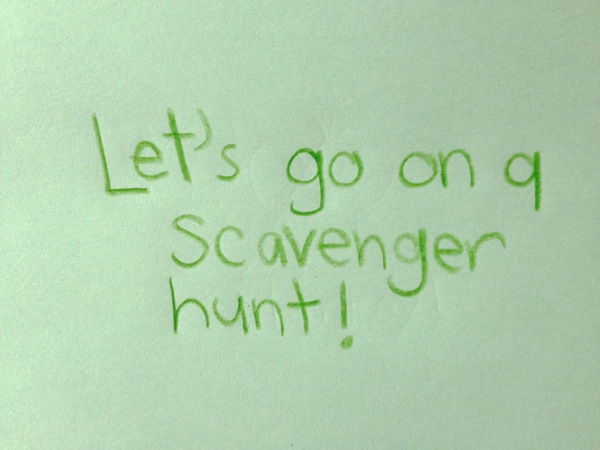 Let's go on a
scavenger
hunt!